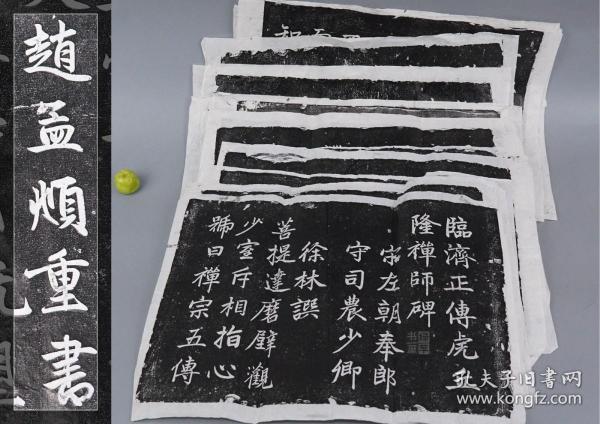 趙孟頫重書
臨濟正傳虎丘
隆禪師碑
宋左朝奉郎
守司農少卿
徐林譔
菩提達磨壁觀
少室斥相指心
號曰禪宗五傳
孔夫子旧书网
www.kongfz.com